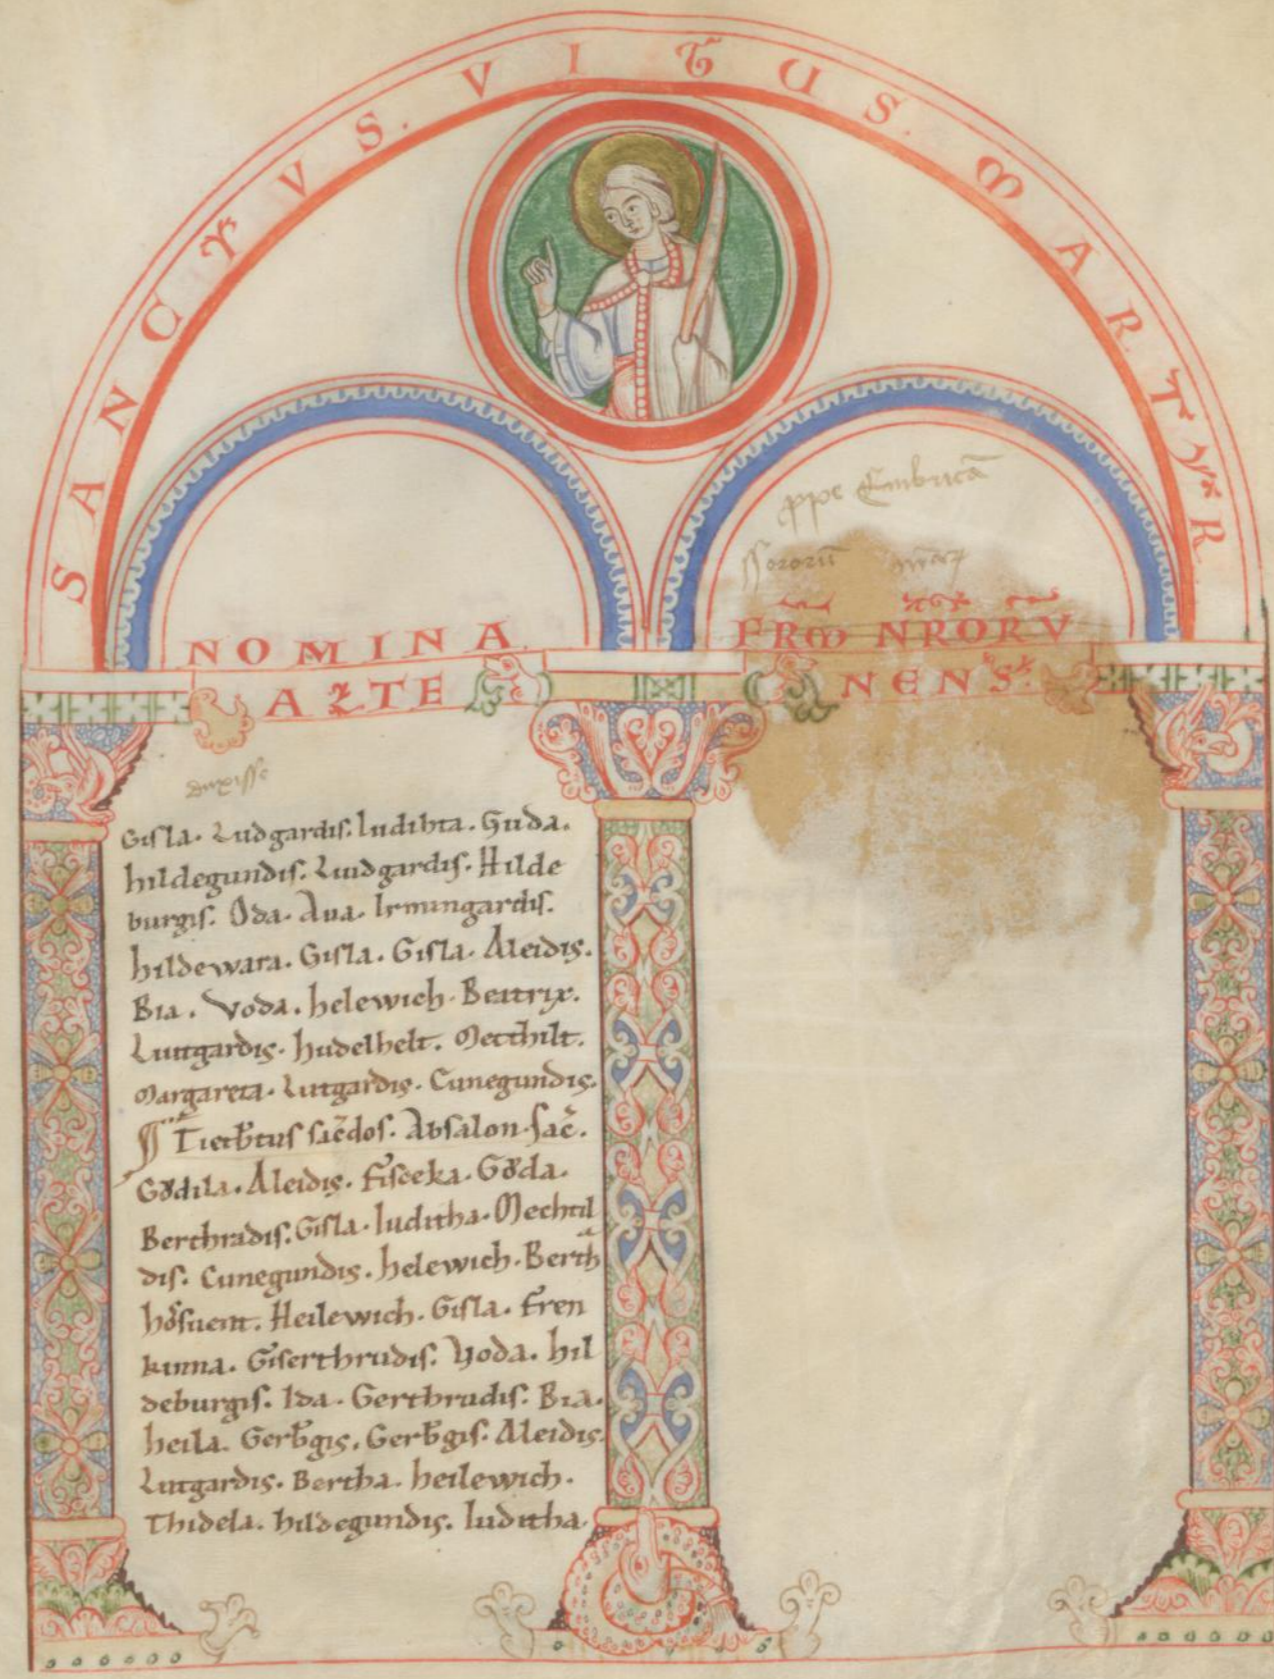 SANCTVS. VITUS. MARTYR
ppe Embricā
Sororū
NOMINA FRM̄ NR̄ORV̄
AL̄TE NENS
duxisse
Gisla. Ludgardis. Iudihta. Guda.
hildegundis. Luidgardis. Hilde
burgis. Oda. Aua. Irmingardis.
hildewara. Gisla. Gisla. Aleidis.
Bia. Voda. helewich. Beatrix.
Luttgardis. hudelhelt. Mecthilt.
Margareta. Lutgardis. Cunegundis.
Tietb̄tus sac̄dos. Absalon. sac̄.
Godila. Aleidis. Fisceka. Goda.
Berthradis. Gisla. Iuditha. Mechtil
dis. Cunegundis. helewich. Berth
hosuent. Heilewich. Gisla. Fren
kinna. Giserthrudis. Yoda. hil
deburgis. Ida. Gerthrudis. Bia.
heila. Gerb̄gis. Gerb̄gis. Aleidis.
Lutgardis. Bertha. heilewich.
Thidela. hildegundis. Iuditha.